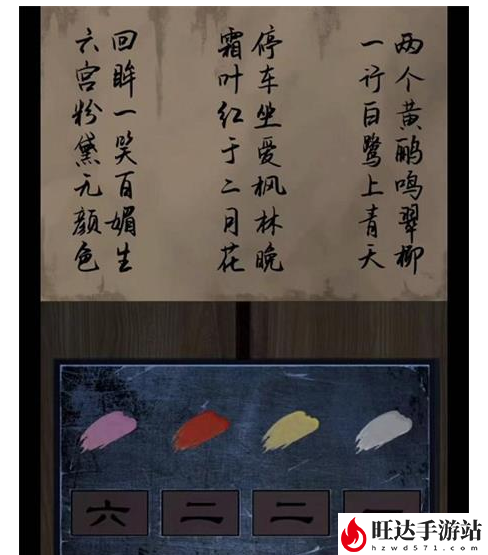 两个黄鹂鸣翠柳
一行白鹭上青天
停车坐爱枫林晚
霜叶红于二月花
回眸一笑百媚生
六宫粉黛无颜色
六 二 二 一
旺达手游站
hzwd571.com